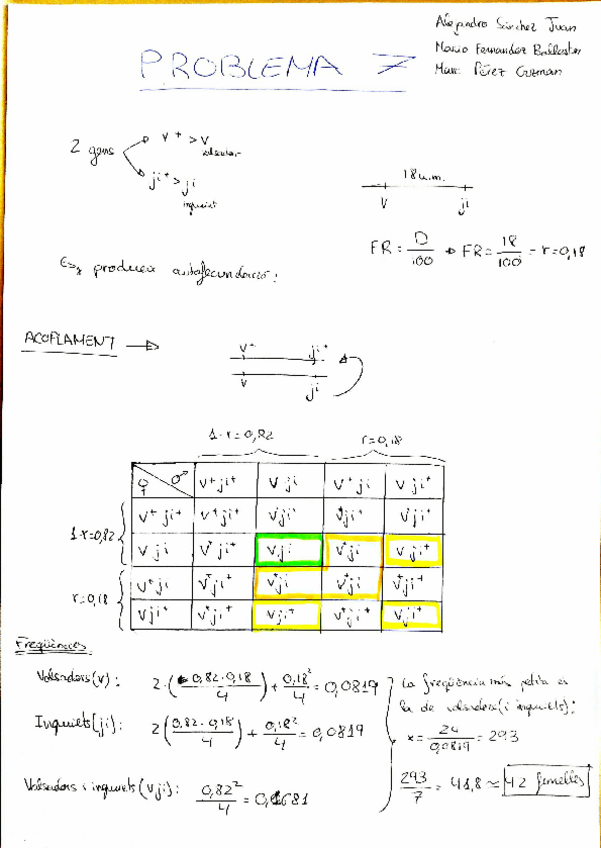 Alejandro Sánchez Juan
Mario Fernandez Ballester
Marc Pérez Guzmán
PROBLEMA 7
2 gens
v⁺ > v
valsador
ji⁺ > ji
inquiet
18 u.m.
v ji
FR = D/100 → FR = 18/100 = r = 0,18
Es produeix autofecundació:
ACOPLAMENT →
v⁺ ji⁺
v ji
1-r = 0,82 r = 0,18
♀ ♂ v⁺ ji⁺ v ji v⁺ ji v ji⁺
1-r = 0,82
v⁺ ji⁺ v⁺ ji⁺ v⁺ ji⁺ v⁺ ji⁺ v⁺ ji⁺
v ji v⁺ ji⁺ v ji v⁺ ji v ji⁺
r = 0,18
v⁺ ji v⁺ ji⁺ v⁺ ji v⁺ ji v⁺ ji⁺
v ji⁺ v⁺ ji⁺ v ji⁺ v⁺ ji⁺ v ji⁺
Freqüències
Valsadors (v): 2·(0,82·0,18/4) + 0,18²/4 = 0,0819
Inquiets (ji): 2(0,82·0,18/4) + 0,18²/4 = 0,0819
Valsadors i inquiets (v ji): 0,82²/4 = 0,1681
La freqüència més petita és
la de valsadors (i inquiets):
x = 24/0,0819 = 293
293/7 = 41,8 ≈ 42 femelles